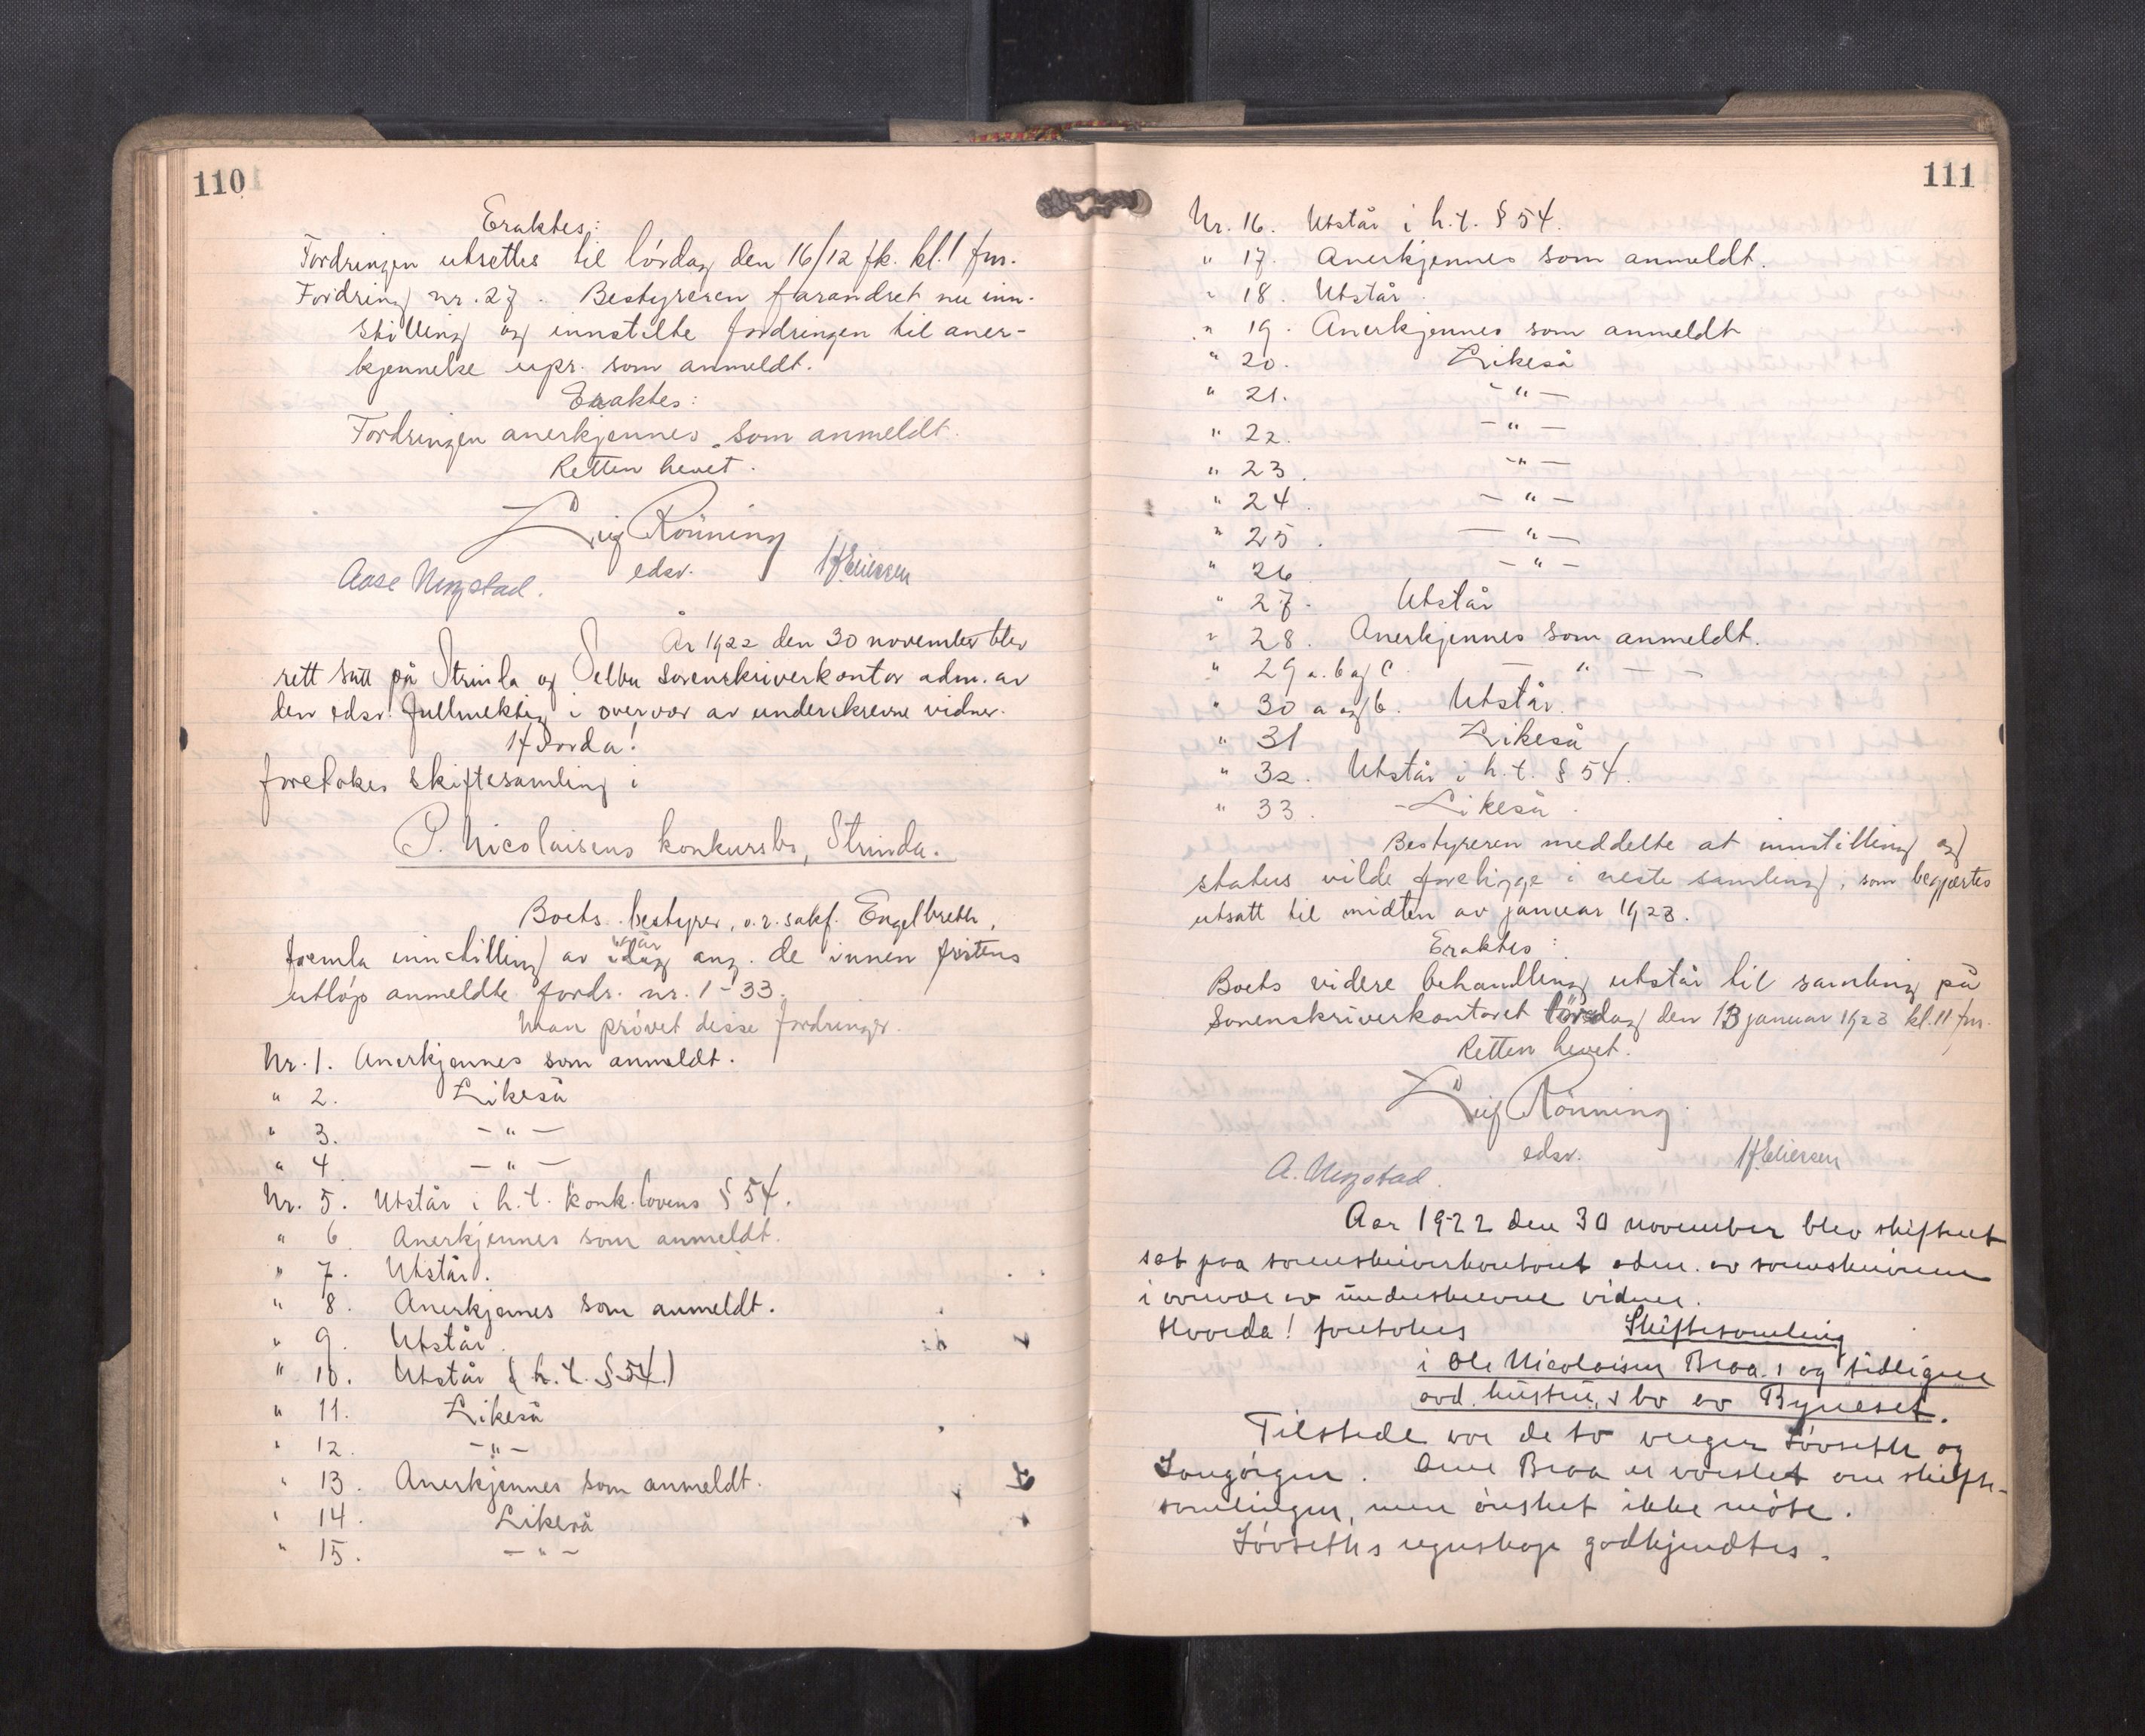 110
Eraktes:
Fordringen utsettes til lørdag den 16/12 fk. kl. 1 fm.
Fordring nr. 27. Bestyreren forandret nu inn-
stilling og innstilte fordringen til aner-
kjennelse upr. som anmeldt.
Eraktes:
Fordringen anerkjennes som anmeldt.
Retten hevet.
Leif Rönning
edsv.
Aase Ungstad.
År 1922 den 30 november blev
rett satt på Strinda og Selbu sorenskriverkontor adm. av
den edsv. fullmektig i overvær av underskrevne vidner.
Hvorda!
foretokes skiftesamling i
P. Nicolaisens konkursbo, Strinda.
Boets bestyrer, o.r. sakf. Engelbreth,
fremla innstilling av igår ang. de innen fristens
utløp anmeldte fordr. nr. 1-33.
Man prøvet disse fordringer.
Nr. 1. Anerkjennes som anmeldt.
" 2. Likeså
" 3. - " -
" 4 - " -
Nr. 5. Utstår i h.t. konk.lovens § 54.
" 6 Anerkjennes som anmeldt.
" 7. Utstår.
" 8. Anerkjennes som anmeldt.
" 9. Utstår.
" 10. Utstår (h.t. § 54.)
" 11. Likeså
" 12. - " -
" 13. Anerkjennes som anmeldt.
" 14. Likeså
" 15. - " -
111
Nr. 16. Utstår i h.t. § 54.
" 17. Anerkjennes som anmeldt.
" 18. Utstår.
" 19. Anerkjennes som anmeldt
" 20. Likeså
" 21. - " -
" 22. - " -
" 23. - " -
" 24. - " -
" 25. - " -
" 26 - " -
" 27. Utstår
" 28. Anerkjennes som anmeldt.
" 29 a. b og c. - " - -
" 30 a og b. Utstår.
" 31 Likeså
" 32. Utstår i h.t. § 54.
" 33. - Likeså.
Bestyreren meddelte at innstilling og
status vilde foreligge i neste samling, som begjærtes
utsatt til midten av januar 1923.
Eraktes:
Boets videre behandling utstår til samling på
Sorenskriverkontoret lørdag den 13 januar 1923 kl. 11 fm.
Retten hevet.
Leif Rönning.
edsv.
A. Ungstad.
Aar 1922 den 30 november blev skifteret
sat paa sorenskriverkontoret adm. av sorenskriveren
i overvær av underskrevne vidner.
Hvorda! foretokes Skiftesamling
i Ole Nicolaisen Braa s og tidligere
avd. hustru s bo av Byneset.
Tilstede var de to verger Løvseth og
Langørgen. Arne Braa er varslet om skifte-
samlingen, men ønsket ikke møte.
Løvseths regnskap godkjendtes.